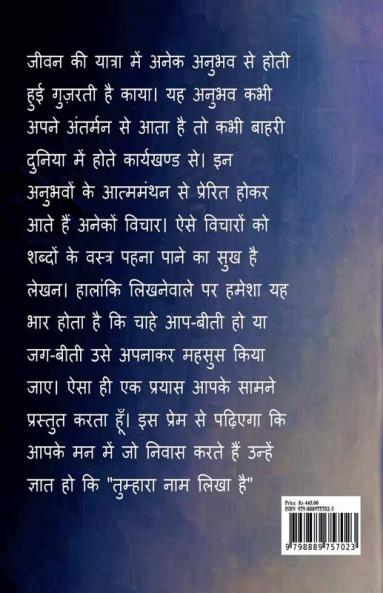 जीवन की यात्रा में अनेक अनुभव से होती
हुई गुज़रती है काया। यह अनुभव कभी
अपने अंतर्मन से आता है तो कभी बाहरी
दुनिया में होते कार्यखण्ड से। इन
अनुभवों के आत्ममंथन से प्रेरित होकर
आते हैं अनेकों विचार। ऐसे विचारों को
शब्दों के वस्त्र पहना पाने का सुख है
लेखन। हालांकि लिखनेवाले पर हमेशा यह
भार होता है कि चाहे आप-बीती हो या
जग-बीती उसे अपनाकर महसुस किया
जाए। ऐसा ही एक प्रयास आपके सामने
प्रस्तुत करता हूँ। इस प्रेम से पढ़िएगा कि
आपके मन में जो निवास करते हैं उन्हें
ज्ञात हो कि "तुम्हारा नाम लिखा है"
Price Rs 445.00
ISBN 979-888975702-3
9 798889 757023